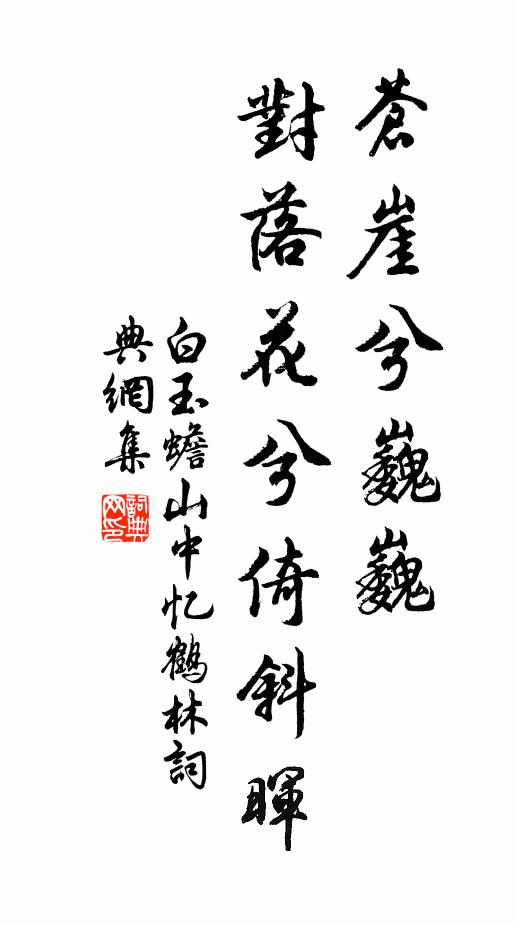 蒼崖兮巍巍
對落花兮倚斜暉
白玉蟾山中忆鶴林詞
典網集
詞典网印